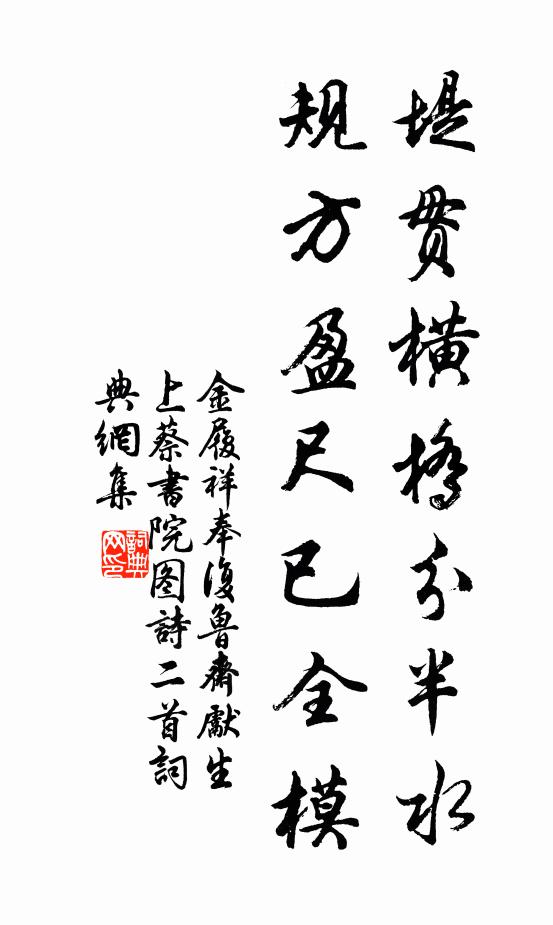 堤貫橫橋分半水
規方盈尺已全模
金履祥奉復魯齋獻生
上蔡書院图詩二首詞
典網集
詞典網印